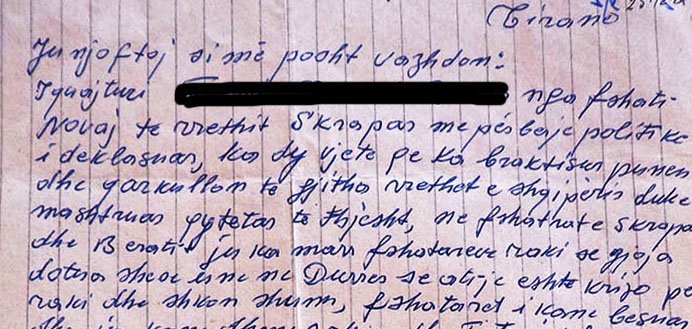 Tirano
Ju njoftoj si më posht vazhdon:
I quajturi nga fshati
Novaj te rrethit Skrapar me përbërje politike
i deklasuar, ka dy vjete qe ka braktisur punen
dhe qarkullon te gjitha rrethet e shqiperis duke
mashtruar qytetar te thjesht, ne fshatrate Skrapa
dhe Beratit ju ka marr fshatareve raki se gjoja
do tua shese une ne Durres se atije eshte krijo pe
raki dhe shkon shum, fshatarët i kane besuar